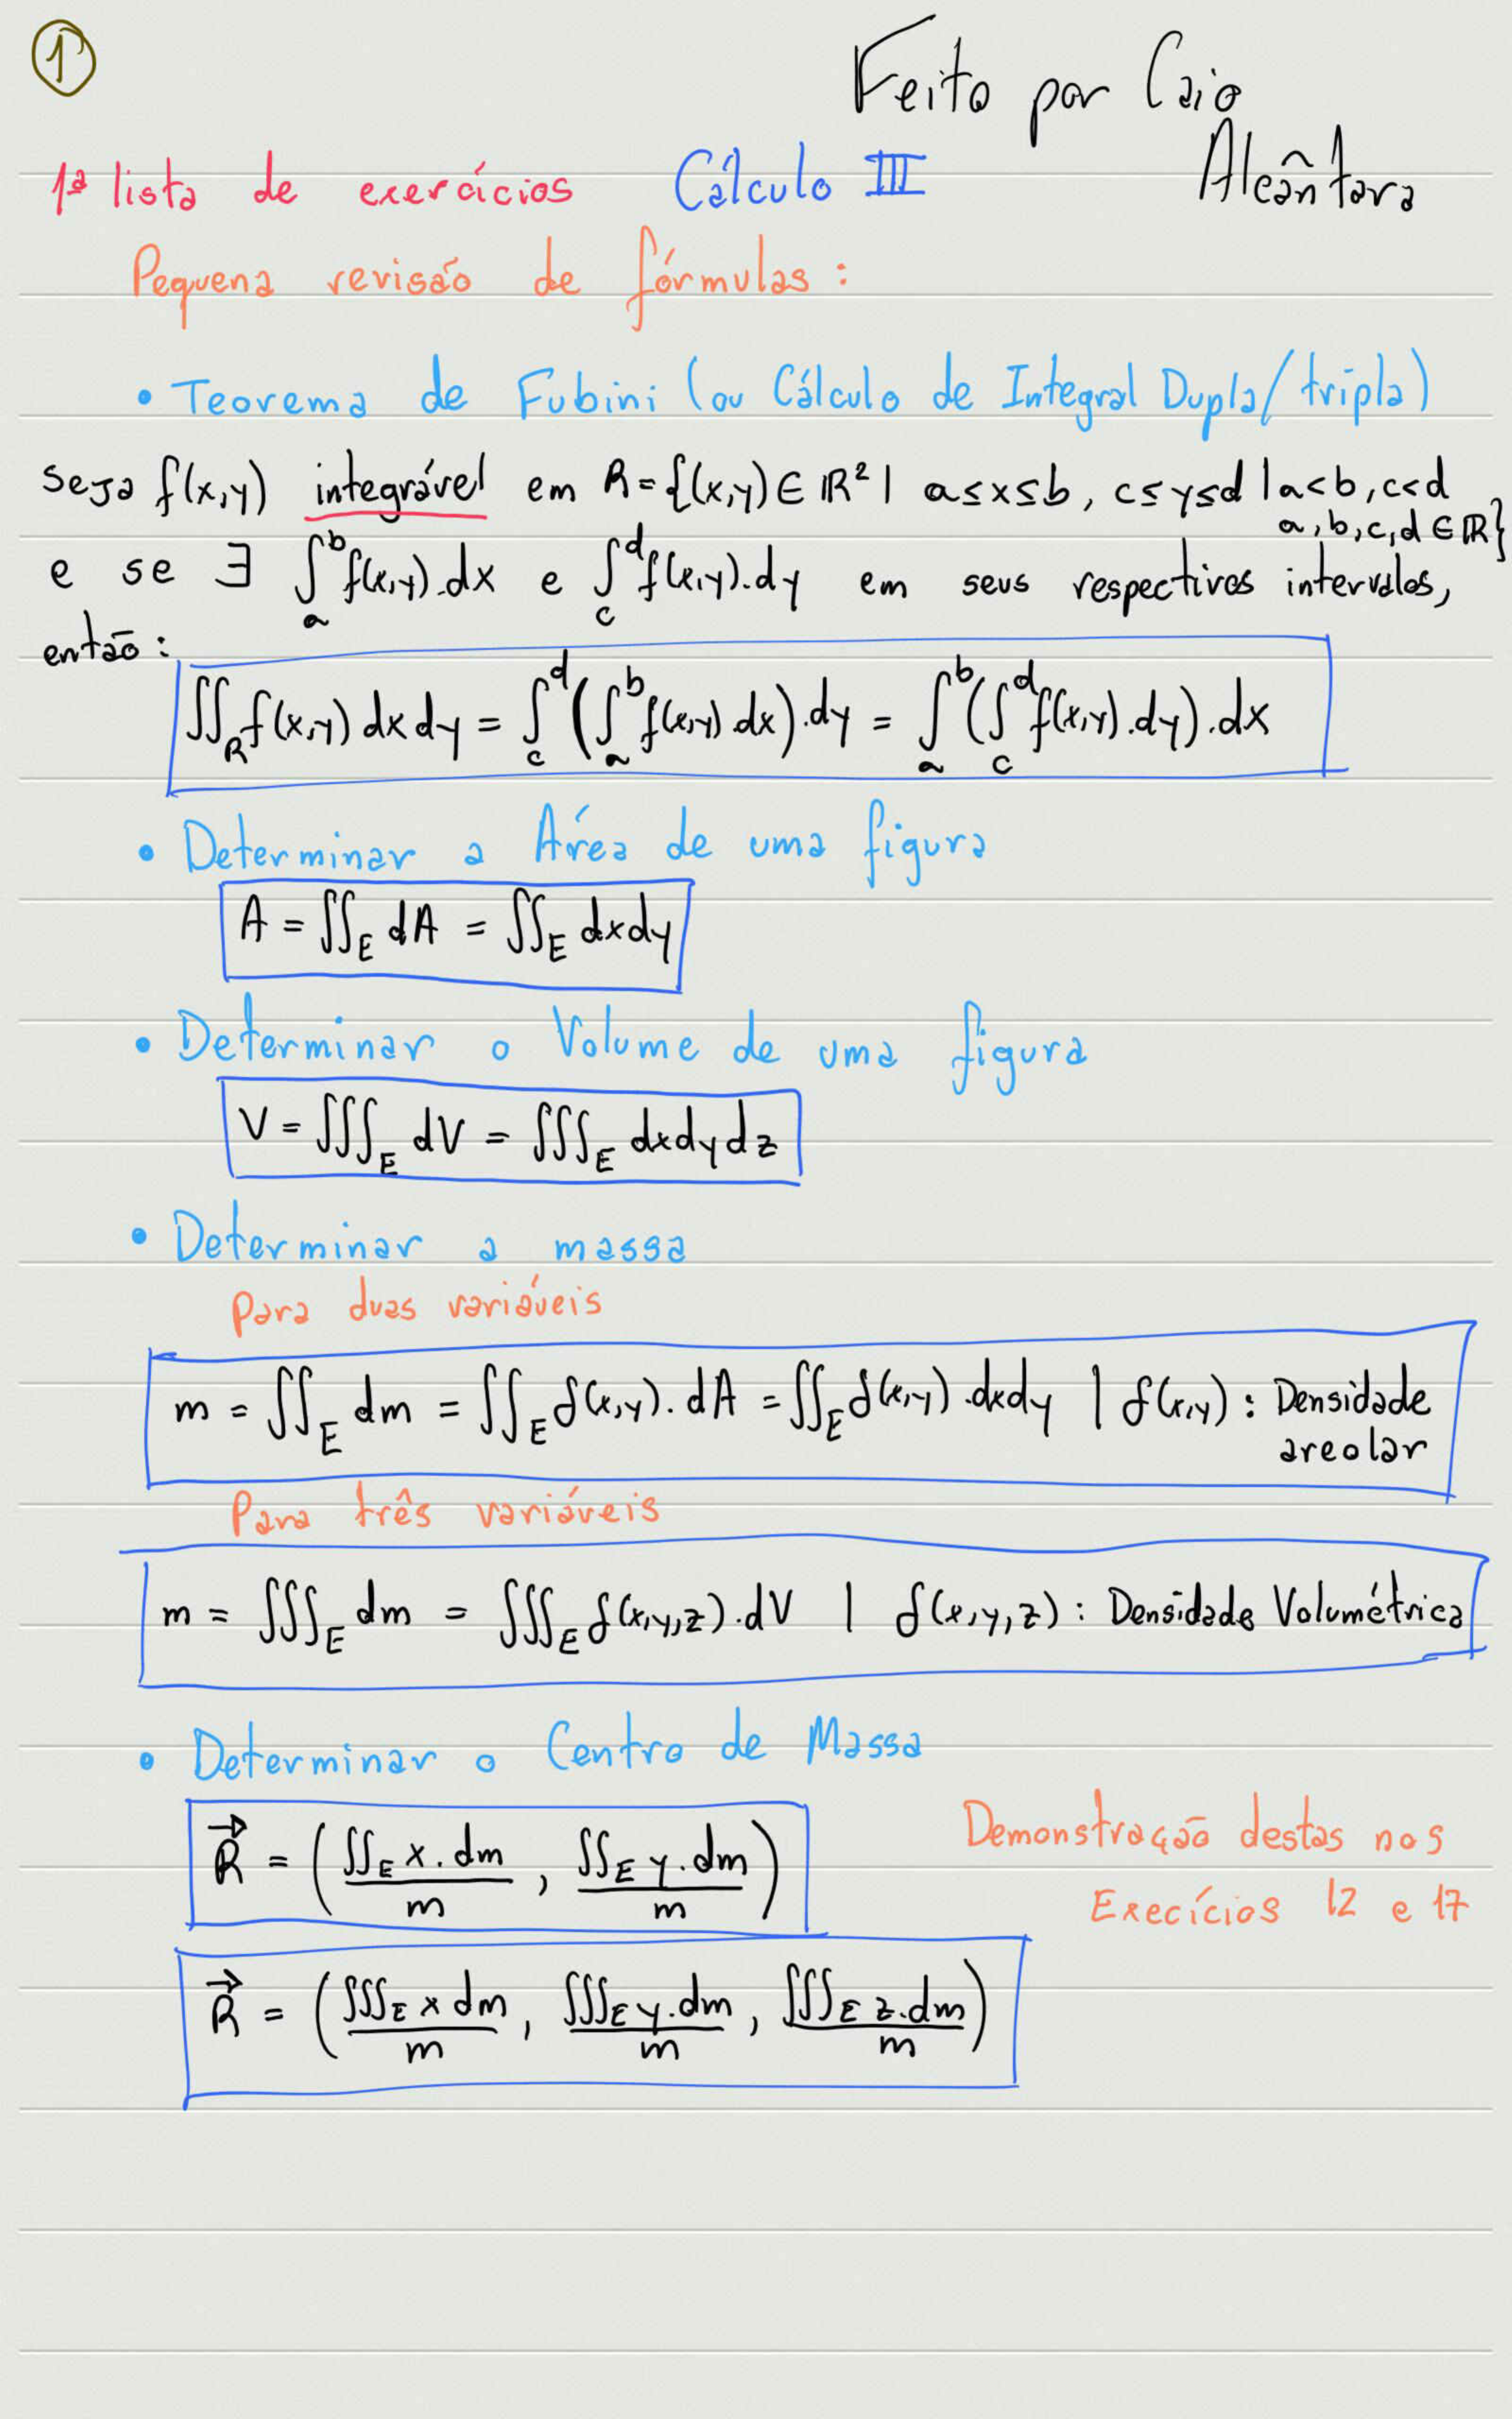 ①
Feito por Caio
Alcântara
1ª lista de exercícios Cálculo III
Pequena revisão de fórmulas:
• Teorema de Fubini (ou Cálculo de Integral Dupla/tripla)
seja f(x,y) integrável em R={(x,y)∈ℝ² | a≤x≤b, c≤y≤d | a<b, c<d
a,b,c,d∈ℝ}
e se ∃ ∫_a^b f(x,y).dx e ∫_c^d f(x,y).dy em seus respectivos intervalos,
então:
∬_R f(x,y) dx dy = ∫_c^d (∫_a^b f(x,y) dx).dy = ∫_a^b (∫_c^d f(x,y).dy).dx
• Determinar a Área de uma figura
A = ∬_E dA = ∬_E dxdy
• Determinar o Volume de uma figura
V = ∭_E dV = ∭_E dxdydz
• Determinar a massa
Para duas variáveis
m = ∬_E dm = ∬_E δ(x,y).dA = ∬_E δ(x,y).dxdy | δ(x,y): Densidade
areolar
Para três variáveis
m = ∭_E dm = ∭_E δ(x,y,z).dV | δ(x,y,z): Densidade Volumétrica
• Determinar o Centro de Massa
R⃗ = (∬_E x.dm / m, ∬_E y.dm / m)
Demonstração destas nos
Execícios 12 e 17
R⃗ = (∭_E x dm / m, ∭_E y.dm / m, ∭_E z.dm / m)